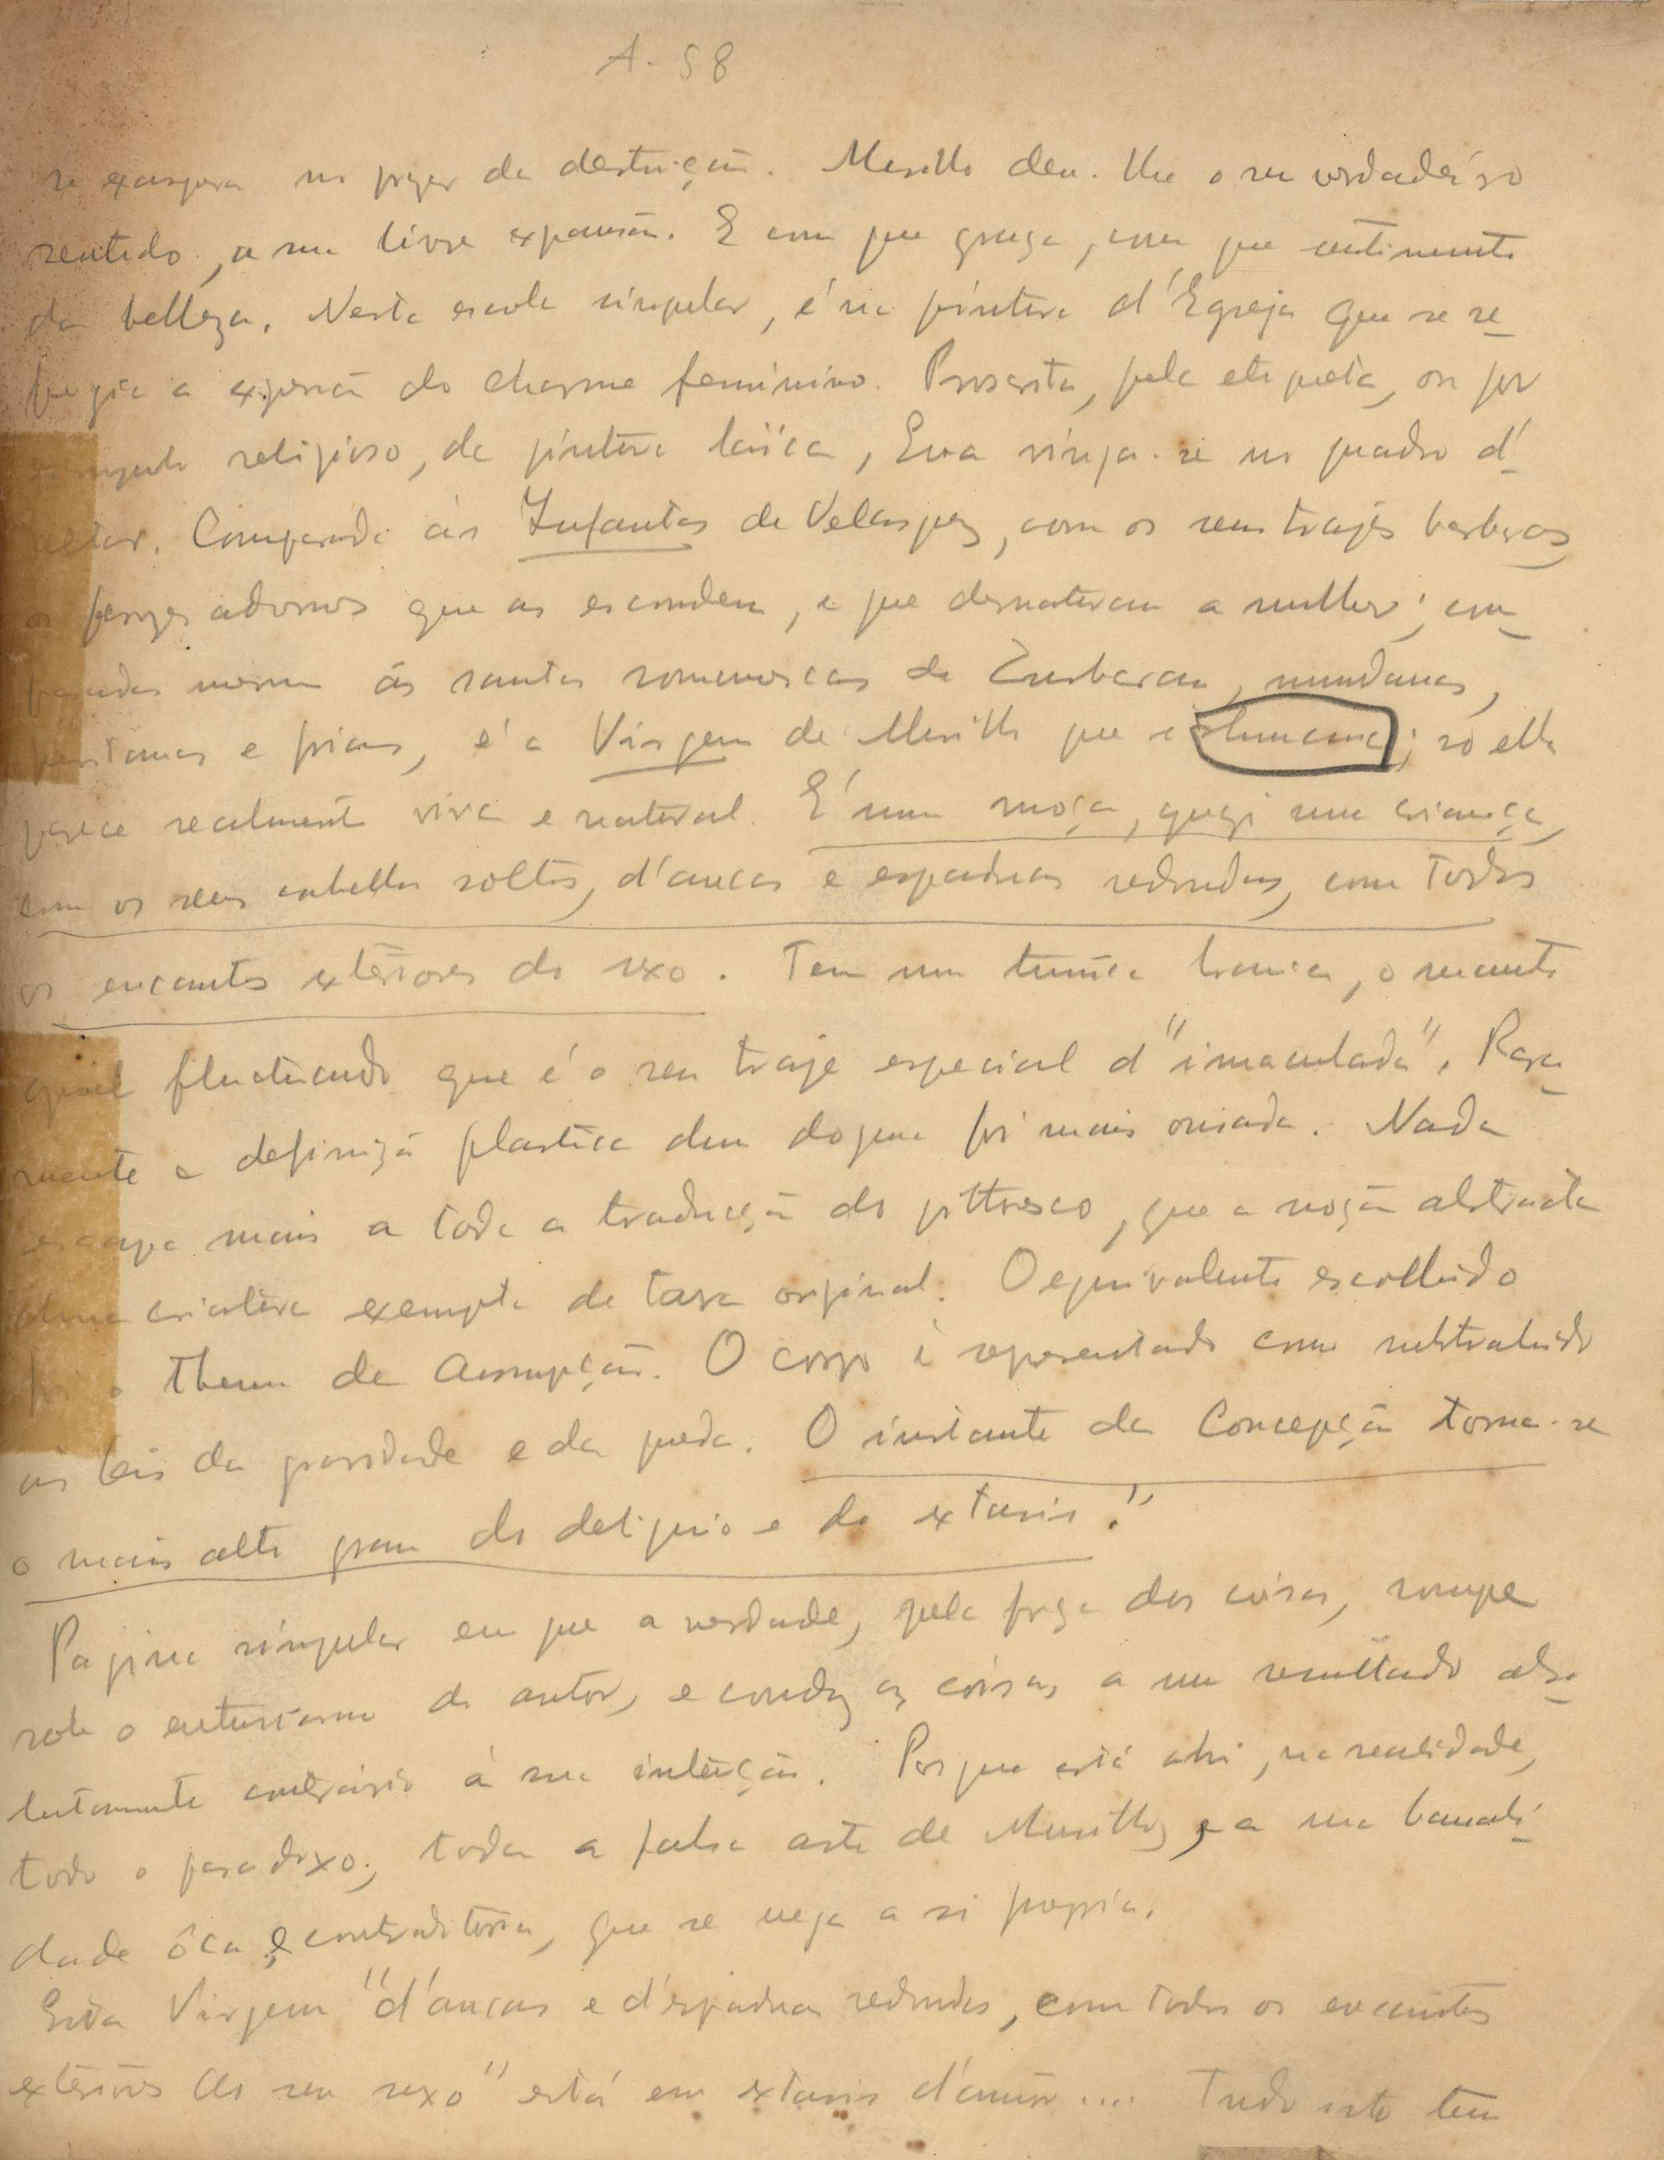 A. 58
se exaspera no prazer da destruição. Murillo deu-lhe o seu verdadeiro
sentido, a sua livre expansão. E com que graça, com que sentimento
da belleza. Nesta escola singular, é na pintura d'Egreja que se re-
fugia a expressão do charme feminino. Proscrita, pela etiqueta, ou por
escrupulo religioso, da pintura laïca, Eva vinga-se no quadro d'
altar. Comparada ás Infantas de Velasquez, com os seus trajes barbaros,
os ferozes adornos que as escondem, e que desnaturam a mulher; com-
paradas mesmo ás santas romanescas de Zurbaran, mundanas,
e frias, é a Virgem de Murillo que é humana; só ella
parece realmente viva e natural. É uma moça, quasi uma criança,
com os seus cabellos soltos, d'ancas e espaduas redondas, com todos
os encantos exteriores do sexo. Tem uma tunica branca, o manto
fluctuando que é o seu traje especial d'"imaculada". Rara-
mente a definição plastica dum dogma foi mais ousada. Nada
escapa mais a toda a traducção do pittoresco, que a noção abstracta
duma criatura exempta de tara original. O equivalente escolhido
foi o thema da Assumpção. O corpo é representado como subtrahido
ás leis da gravidade e da queda. O instante da Concepção torna-se
o mais alto grau do deliquio e do extasis."
Pagina singular em que a verdade, pela força das cóisas, rompe
sob o entusiasmo do autor, e conduz as cóisas a um resultado abso-
lutamente contrário á sua intenção. Porque está ahi, na realidade,
todo o paradoxo; toda a falsa arte de Murillo, e a sua banali-
dade ôca e contraditoria, que se nega a si propria.
Esta Virgem "d'ancas e d'espaduas redondas, com todos os encantos
exteriores do seu sexo" está em extasis d'amôr .... Tudo isto tem